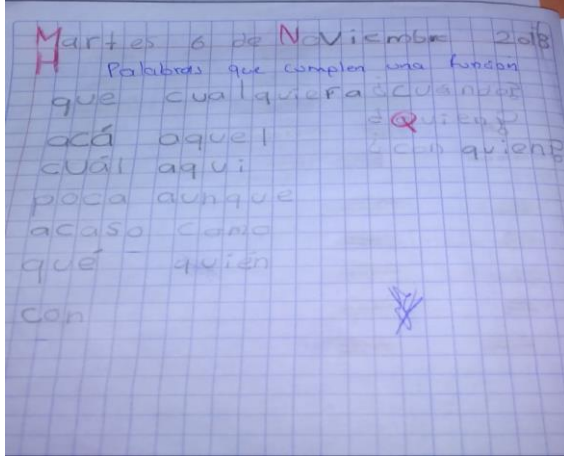 Martes 6 de Noviembre 2018
H Palabras que cumplen una funcion
que cualquiera ¿cuándo?
acá aquel ¿Quién?
cuál aqui ¿con quién?
poca aunque
acaso como
qué quién
con